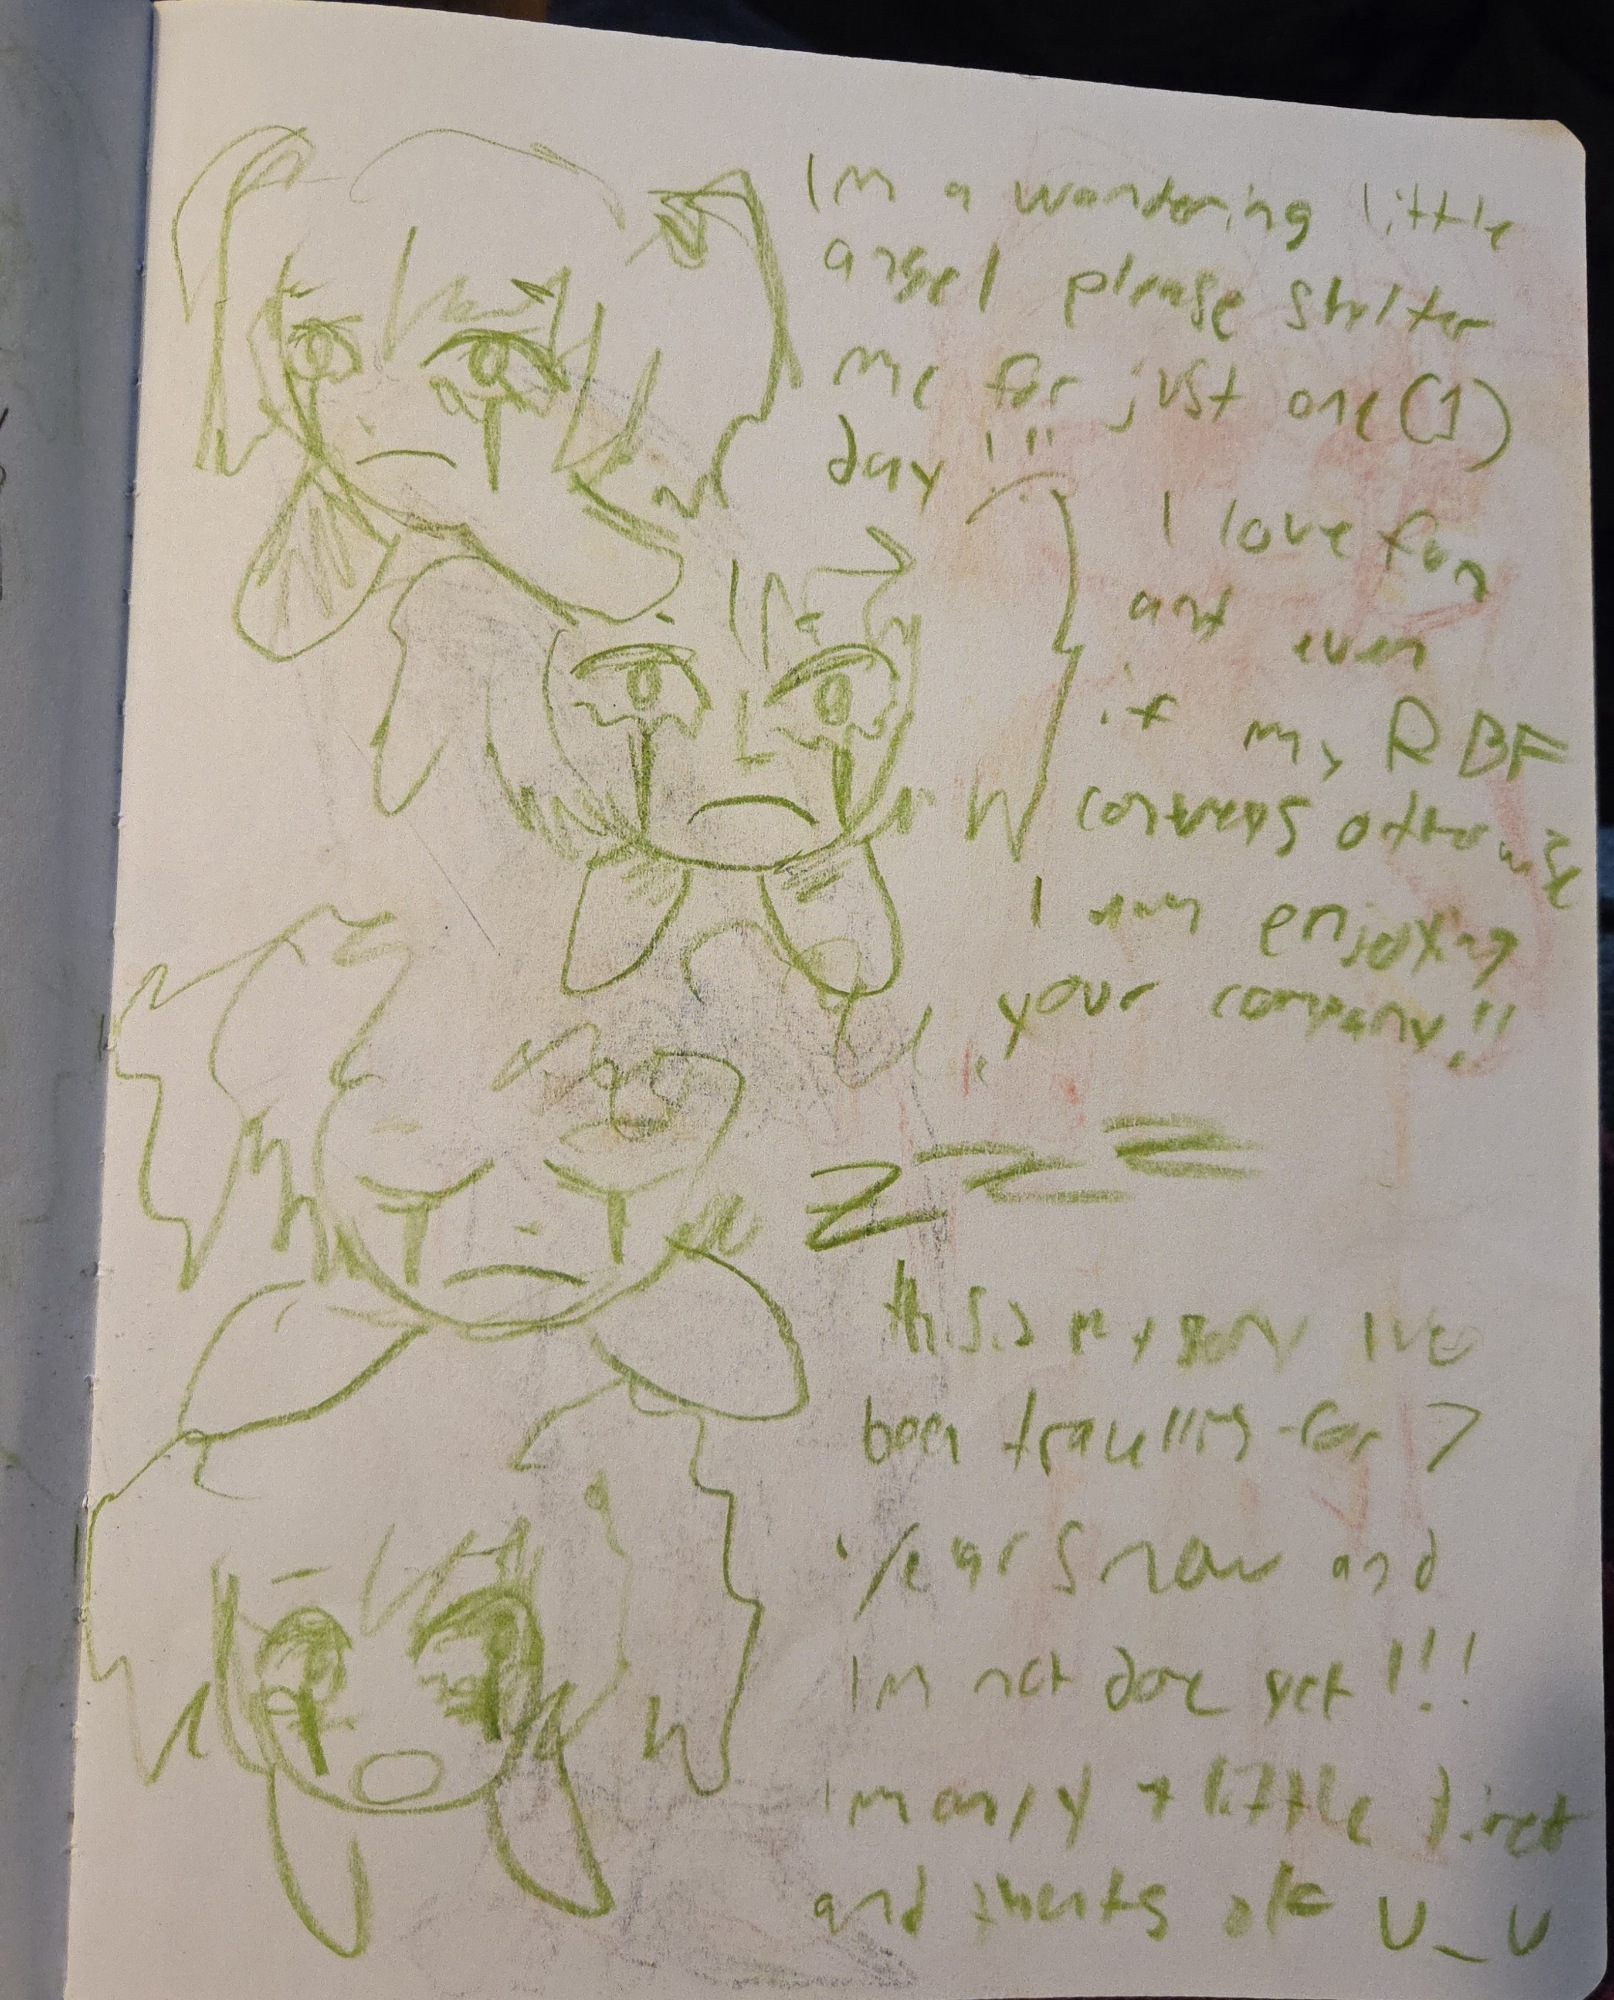 Im a wandering little
angel please shelter
me for just one (1)
day!!!
I love fun
and even
if my RBF
conveys otherwise
I am enjoying
your company!!
z z z
this is my song Ive
been travelling for 7
years now and
Im not done yet!!!
Im only a little tired
and thats ok U_U